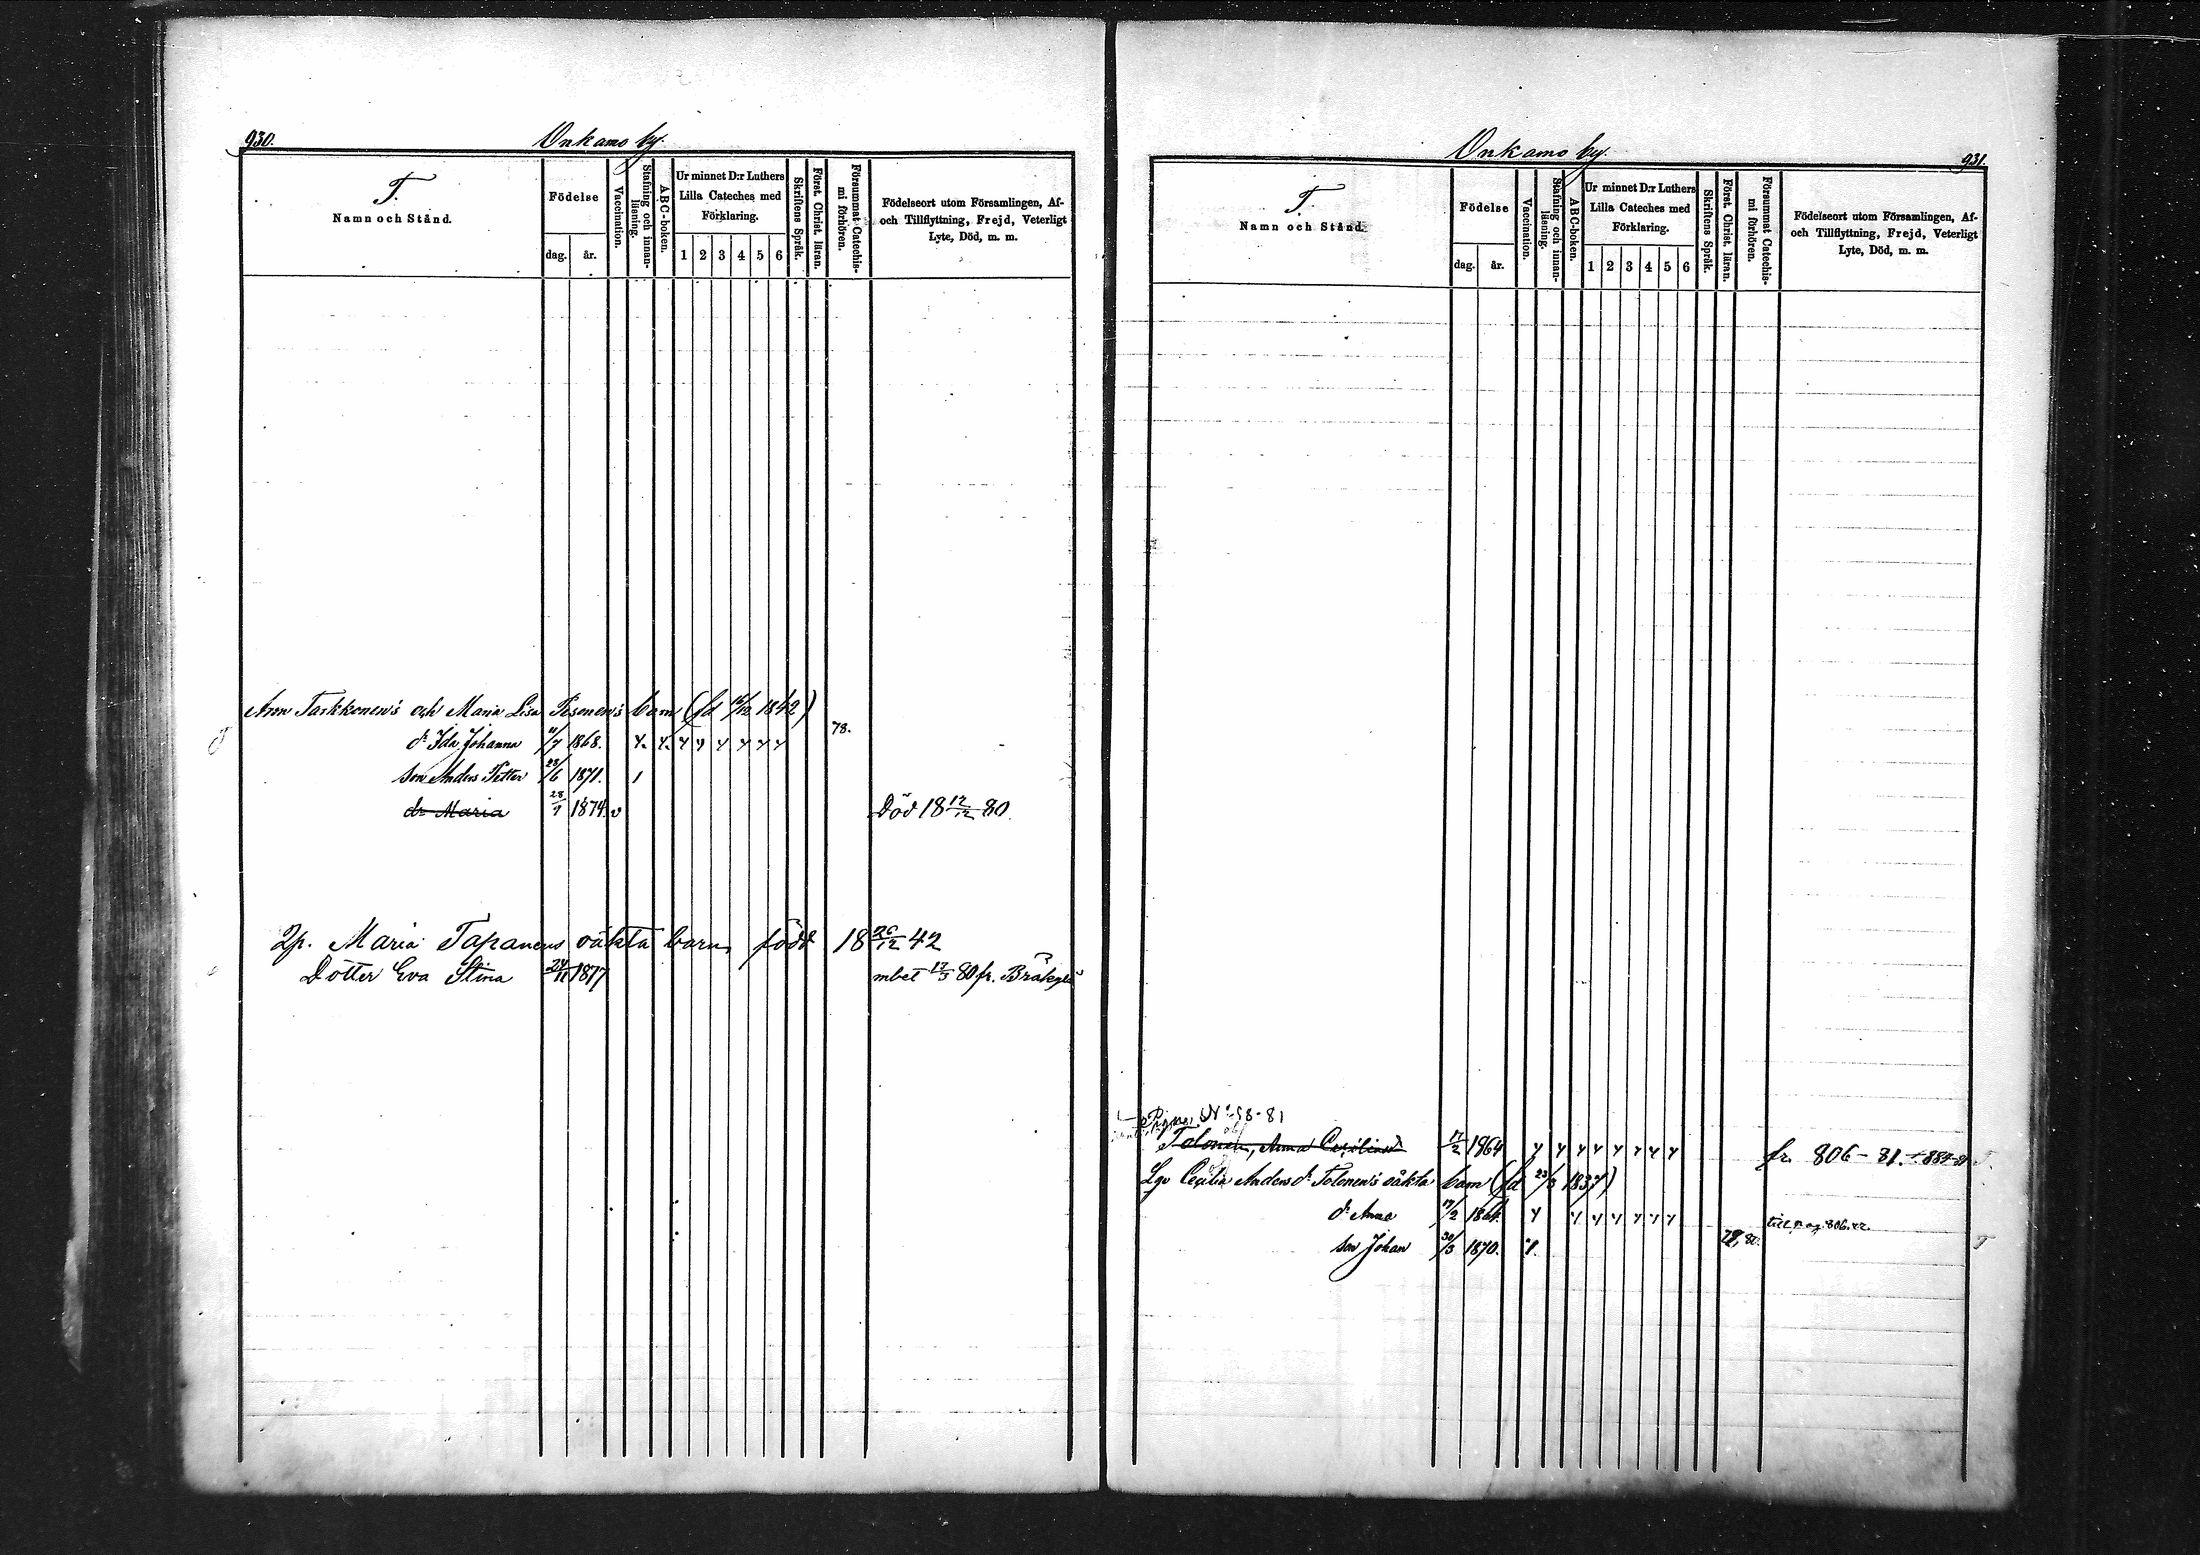 930.
Onkamo by.
T.
Namn och Stånd.
Födelse
dag.
år.
Vaccination.
Stafning och innan-
läsning.
ABC-boken.
Ur minnet D:r Luthers
Lilla Cateches med
Förklaring.
1 2 3 4 5 6
Skriftens Språk.
Först. Christ. läran.
Försummat Catechis-
mi förhören.
Födelseort utom Församlingen, Af-
och Tillflyttning, Frejd, Veterligt
Lyte, Död, m. m.
Aron Tarkkonen's och Maria Lisa Pesonen's barn (fd 16/12 1842)
78.
dr Ida Johanna 11/7 1868.
son Anders Petter 23/6 1871.
dr Maria 28/9 1874. v Död 18 12/12 80.
Maria Tapanens oäkta barn, född 18 26/12 42
Dotter Eva Stina 24/11 1877 mbet 17/3 80 fr. Bräkylä
Onkamo by.
931.
T.
Namn och Stånd.
Födelse
dag.
år.
Vaccination.
Stafning och innan-
läsning.
ABC-boken.
Ur minnet D:r Luthers
Lilla Cateches med
Förklaring.
1 2 3 4 5 6
Skriftens Språk.
Först. Christ. läran.
Försummat Catechis-
mi förhören.
Födelseort utom Församlingen, Af-
och Tillflyttning, Frejd, Veterligt
Lyte, Död, m. m.
Tolonen, Anna 17/2 1864 fr. 806-81.
Cecilia Anders dr Tolonen's oäkta barn (fd 23/3 1837)
dr Anna 17/2 1864. till pag. 806.
son Johan 30/3 1870. 79, 80.